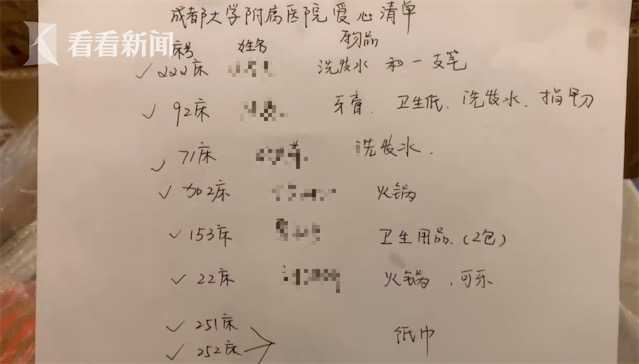 成都大学附属医院爱心清单
看看新闻
床号 姓名 物品
222床 洗发水和一支笔
92床 牙膏、卫生纸、洗发水、指甲刀
71床 洗发水.
加2床 火锅
153床 卫生用品.(2包)
22床 火锅,可乐
251床
252床 纸巾